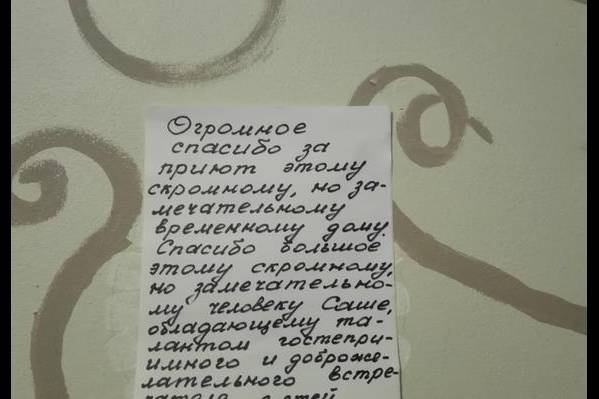 Огромное
спасибо за
приют этому
скромному, но за-
мечательному
временному дому.
Спасибо большое
этому скромному,
но замечательно-
му человеку Саше,
обладающему та-
лантом гостепри-
имного и доброже-
лательного встре-